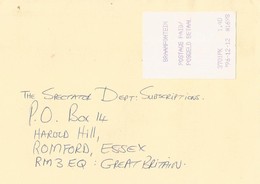 BRAAMFONTEIN
POSTAGE PAID
POSGELD BETAAL
The Spectator Dept: Subscriptions.
P.O. Box 14
Harold Hill,
Romford, Essex
RM3 EQ: Great Britain.